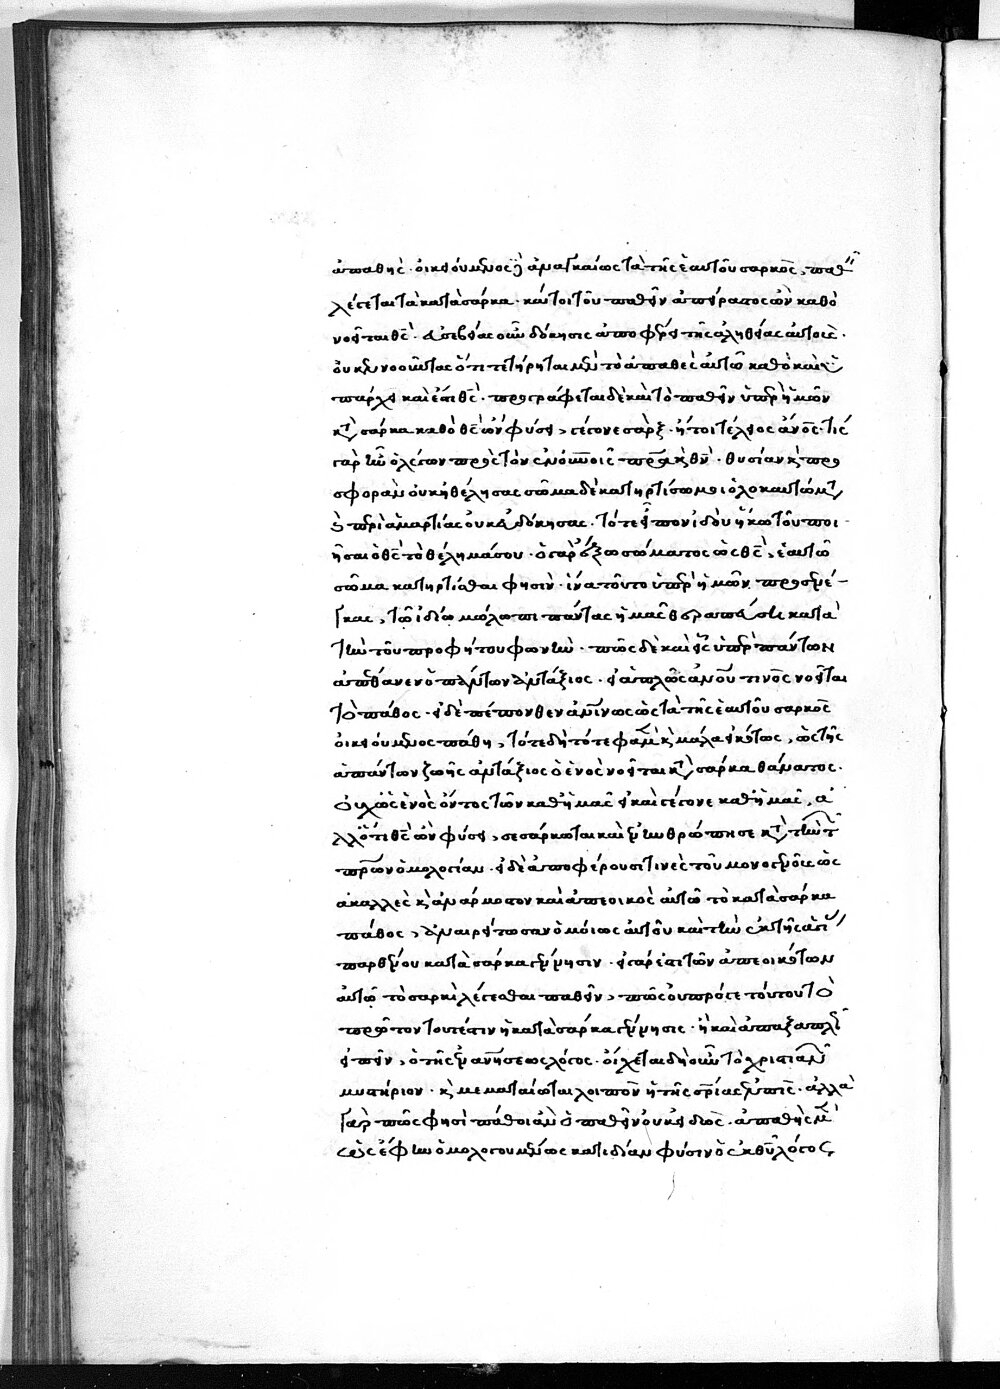 ἀπαθής. οἰκειούμενος δὲ ἀναγκαίως τὰ τῆς ἑαυτοῦ σαρκός, παθεῖν
λέγεται τὰ κατὰ σάρκα. καίτοι τοῦ παθεῖν ἀπείρατος ὢν καθὸ
νοεῖται θς. εὐσεβείας οὖν δόκησις ἀποφέρει τῆς ἀληθείας αὐτοὺς.
οὐκ ἐννοοῦντας ὅτι τετήρηται μὲν τὸ ἀπαθὲς αὐτῶ καθὸ καὶ ὑ
πάρχει καὶ ἔστι θς. προσγράφεται δὲ καὶ τὸ παθεῖν ὑπὲρ ἡμῶν
κατὰ σάρκα καθὸ θς ὢν φύσει, γέγονε σάρξ. ἤτοι τέλειος ἄνος. τίς
γὰρ ἦν ὁ λέγων πρὸς τὸν ἐν οὐνοῖς πρα καὶ θν. θυσίαν καὶ προσ
φορὰν οὐκ ἠθέλησας σῶμα δὲ κατηρτίσω μοι ὁλοκαυτώματα
καὶ περὶ ἁμαρτίας οὐκ εὐδόκησας. τότε εἶπον ἰδοὺ ἥκω τοῦ ποι
ῆσαι ὁ θς τὸ θέλημά σου. ὁ γὰρ ἔξω σώματος ὡς θς, ἑαυτῶ
σῶμα κατηρτίσθαι φησὶν. ἵνα τοῦτο ὑπὲρ ἡμῶν προσενέ-
γκας, τῶ ἰδίω μώλωπι πάντας ἡμᾶς θεραπεύση κατὰ
τὴν τοῦ προφήτου φωνὴν. πῶς δὲ καὶ εἷς ὑπὲρ πάντων
ἀπέθανεν ὁ πάντων ἀντάξιος. εἰ ἁπλῶς ἀνου τινὸς νοεῖται
τὸ πάθος. εἰ δὲ πέπονθεν ἀνθρωπίνως ὡς τὰ τῆς ἑαυτοῦ σαρκὸς
οἰκειούμενος πάθη, τότε δὴ τότε φαμὲν καὶ μάλα εἰκότως, ὡς τῆς
ἁπάντων ζωῆς ἀντάξιος ὁ ἑνὸς νοεῖται κατὰ σάρκα θάνατος.
οὐχ ὡς ἑνὸς ὄντος τῶν καθ' ἡμᾶς εἰ καὶ γέγονε καθ' ἡμᾶς, ἀ
λλ' ὅτι θς ὢν φύσει, σεσάρκωται καὶ ἐνηνθρώπησε κατὰ τὴν τῶν
πρων ὁμολογίαν. εἰ δὲ ἀποφέρουσί τινες τοῦ μονογενοῦς ὡς
ἀκαλλὲς καὶ ἀνάρμοστον καὶ ἀπεοικὸς αὐτῶ τὸ κατὰ σάρκα
πάθος, ἀναιρείτωσαν ὁμοίως αὐτοῦ καὶ τὴν ἐκ τῆς ἁγίας
παρθένου κατὰ σάρκα γέννησιν. εἰ γὰρ ἐστι τῶν ἀπεοικότων
αὐτῶ τὸ σαρκὶ λέγεσθαι παθεῖν, πῶς οὐ πρό γε τούτου τὸ
πρῶτον τουτέστιν ἡ κατὰ σάρκα γέννησις. ἢ καὶ ἁπαξαπλῶς
εἰπεῖν, ὁ τῆς ἐνανθρωπήσεως λόγος. οἴχεται δὴ οὖν τὸ χριστιανῶν
μυστήριον. καὶ μεματαίωται λοιπὸν ἡ τῆς σρίας ἐλπίς. ἀλλὰ
γὰρ πῶς φησὶ πάθοι ἂν ὁ παθεῖν οὐκ εἰδώς. ἀπαθὴς μὲν
ὡς ἔφην ὁμολογουμένως κατ' ἰδίαν φύσιν ὁ ἐκ θυ λόγος